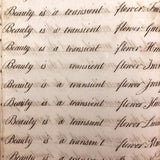 Beauty is a transient flower
Beauty is a transient flower
Beauty is a transient flower
Beauty is a transient flower
Beauty is a transient flower
Beauty is a transient flower
Beauty is a transient flower
Beauty is a transient flower